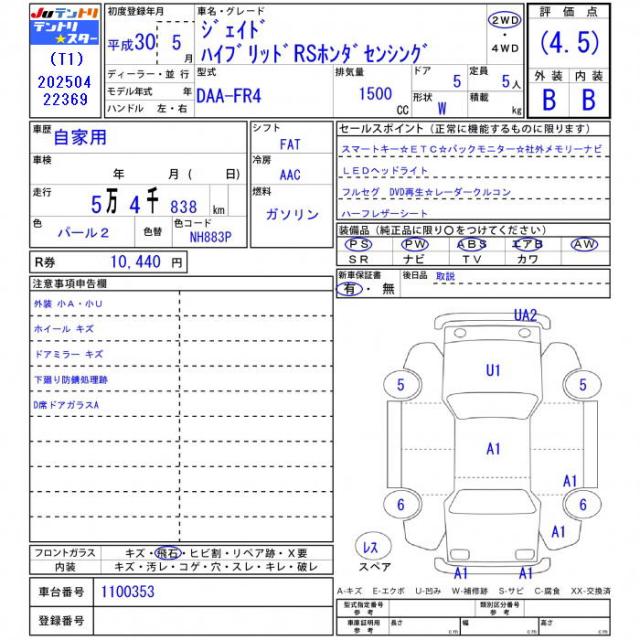 JUテントリ
テントリ
☆スター
(T1)
202504
22369
初度登録年月
平成30 5月
車名・グレード
ジェイド
ハイブリッドRSホンダセンシング
2WD
・
4WD
評価点
(4.5)
外装 内装
B B
ディーラー・並行
モデル年式 年
ハンドル 左・右
型式
DAA-FR4
排気量
1500
cc
ドア 5
形状 W
定員 5人
積載 kg
車歴
自家用
車検
年 月( 日)
走行
5万4千838km
色
パール2
色替
色コード
NH883P
シフト
FAT
冷房
AAC
燃料
ガソリン
セールスポイント(正常に機能するものに限ります)
スマートキー☆ETC☆バックモニター☆社外メモリーナビ
LEDヘッドライト
フルセグ DVD再生☆レーダークルコン
ハーフレザーシート
装備品(純正品に限り○をつけてください)
PS PW ABS エアB AW
SR ナビ TV カワ
新車保証書
有・無
後日品 取説
R券 10,440円
注意事項申告欄
外装 小A・小U
ホイール キズ
ドアミラー キズ
下廻り防錆処理跡
D席ドアガラスA
UA2
U1
5
5
A1
A1
6
6
A1
A1
A1
レス
スペア
フロントガラス キズ・飛石・ヒビ割・リペア跡・X要
内装 キズ・汚レ・コゲ・穴・スレ・キレ・破レ
車台番号 1100353
登録番号
A-キズ E-エクボ U-凹み W-補修跡 S-サビ C-腐食 XX-交換済
型式指定番号
類別区分番号
参考
車庫証明用
参考
長さ cm
幅 cm
高さ cm